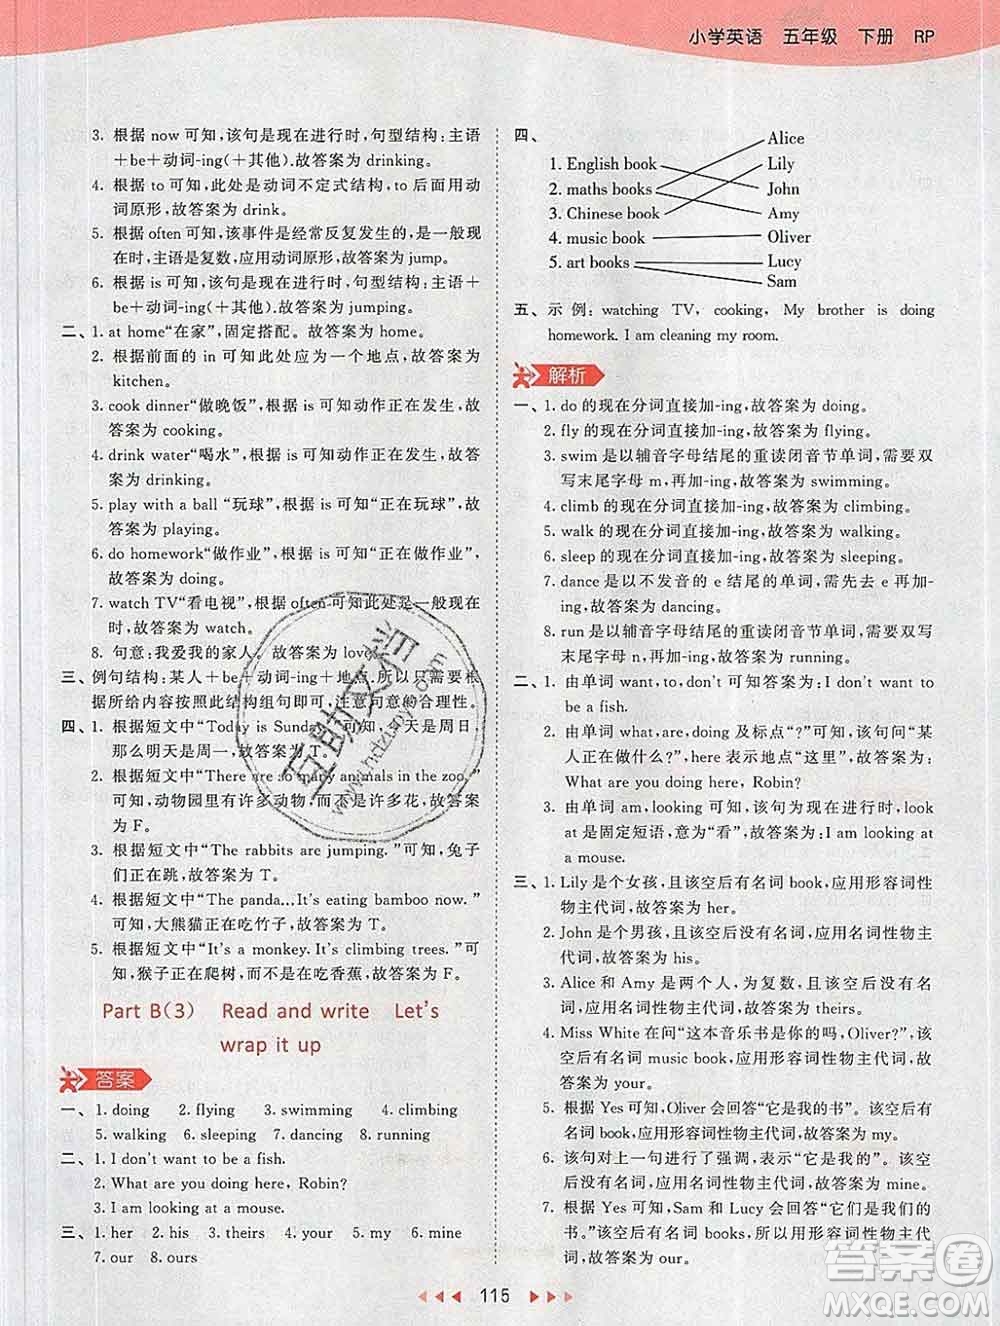 小学英语 五年级 下册 RP
3. 根据 now 可知,该句是现在进行时,句型结构:主语
+be+动词-ing(+其他).故答案为 drinking.
4. 根据 to 可知,此处是动词不定式结构,to 后面用动
词原形,故答案为 drink.
5. 根据 often 可知,该事件是经常反复发生的,是一般
现在时,主语是复数,应用动词原形,故答案为 jump.
6. 根据 is 可知,该句是现在进行时,句型结构:主语+
be+动词-ing(+其他).故答案为 jumping.
二、1. at home“在家”,固定搭配。故答案为 home.
2. 根据前面的 in 可知此处应为一个地点,故答案为
kitchen.
3. cook dinner“做晚饭”,根据 is 可知动作正在发生,故
答案为 cooking.
4. drink water“喝水”,根据 is 可知动作正在发生,故答
案为 drinking.
5. play with a ball “玩球”,根据 is 可知“正在玩球”,故
答案为 playing.
6. do homework“做作业”,根据 is 可知“正在做作业”,
故答案为 doing.
7. watch TV“看电视”,根据 often 可知此处是一般现在
时,故答案为 watch.
8. 句意:我爱我的家人。故答案为 love.
三、例句结构:某人+be+doing+地点.所以只需要根
据所给内容按照此结构组句即可,注意句意的合理性。
四、1. 根据短文中“Today is Sunday.”可知,今天是周日,
那么明天是周一,故答案为 T。
2. 根据短文中“There are so many animals in the zoo.”
可知,动物园里有许多动物,而不是许多花,故答案
为 F。
3. 根据短文中“The rabbits are jumping.”可知,兔子
们正在跳,故答案为 T。
4. 根据短文中“The panda…It's eating bamboo now.”
可知,大熊猫正在吃竹子,故答案为 T。
5. 根据短文中“It's a monkey. It's climbing trees.”可
知,猴子正在爬树,而不是在吃香蕉,故答案为 F。
Part B(3) Read and write Let's
wrap it up
答案
一、1. doing 2. flying 3. swimming 4. climbing
5. walking 6. sleeping 7. dancing 8. running
二、1. I don't want to be a fish.
2. What are you doing here, Robin?
3. I am looking at a mouse.
三、1. her 2. his 3. theirs 4. your 5. my 6. mine
7. our 8. ours
四、
Alice
1. English book Lily
2. maths books John
3. Chinese book Amy
4. music book Oliver
5. art books Lucy
Sam
五、示例: watching TV, cooking, My brother is doing
homework. I am cleaning my room.
解析
一、1. do 的现在分词直接加-ing,故答案为 doing.
2. fly 的现在分词直接加-ing,故答案为 flying.
3. swim 是以辅音字母结尾的重读闭音节单词,需要双
写末尾字母 m,再加-ing,故答案为 swimming.
4. climb 的现在分词直接加-ing,故答案为 climbing.
5. walk 的现在分词直接加-ing,故答案为 walking.
6. sleep 的现在分词直接加-ing,故答案为 sleeping.
7. dance 是以不发音的 e 结尾的单词,需先去 e 再加-
ing,故答案为 dancing.
8. run 是以辅音字母结尾的重读闭音节单词,需要双写
末尾字母 n,再加-ing,故答案为 running.
二、1. 由单词 want, to, don't 可知答案为: I don't want to
be a fish.
2. 由单词 what, are, doing 及标点“?”可知,该句为“某
人正在做什么?”, here 表示地点“这里”,故答案为:
What are you doing here, Robin?
3. 由单词 am, looking 可知,该句为现在进行时, look
at 是固定短语,意为“看”,故答案为: I am looking at
a mouse.
三、1. Lily 是个女孩,且该空后有名词 book,应用形容词性
物主代词,故答案为 her。
2. John 是个男孩,且该空后没有名词,应用名词性物主
代词,故答案为 his。
3. Alice 和 Amy 是两个人,为复数,且该空后没有名
词,应用名词性物主代词,故答案为 theirs。
4. Miss White 在问“这本音乐书是你的吗,Oliver?”,该
空后有名词 music book,应用形容词性物主代词,故
答案为 your。
5. 根据 Yes 可知,Oliver 会回答“它是我的书”。该空后有
名词 book,应用形容词性物主代词,故答案为 my。
6. 该句对上一句进行了强调,表示“它是我的”。该空后
没有名词,应用名词性物主代词,故答案为 mine。
7. 根据 Yes 可知,Sam 和 Lucy 会回答“它们是我们的
书”。该空后有名词 books,所以要用形容词性物主代
词,故答案为 our。
115
互助文档
www.hdzuoye.com
答案圈
MXQE.COM